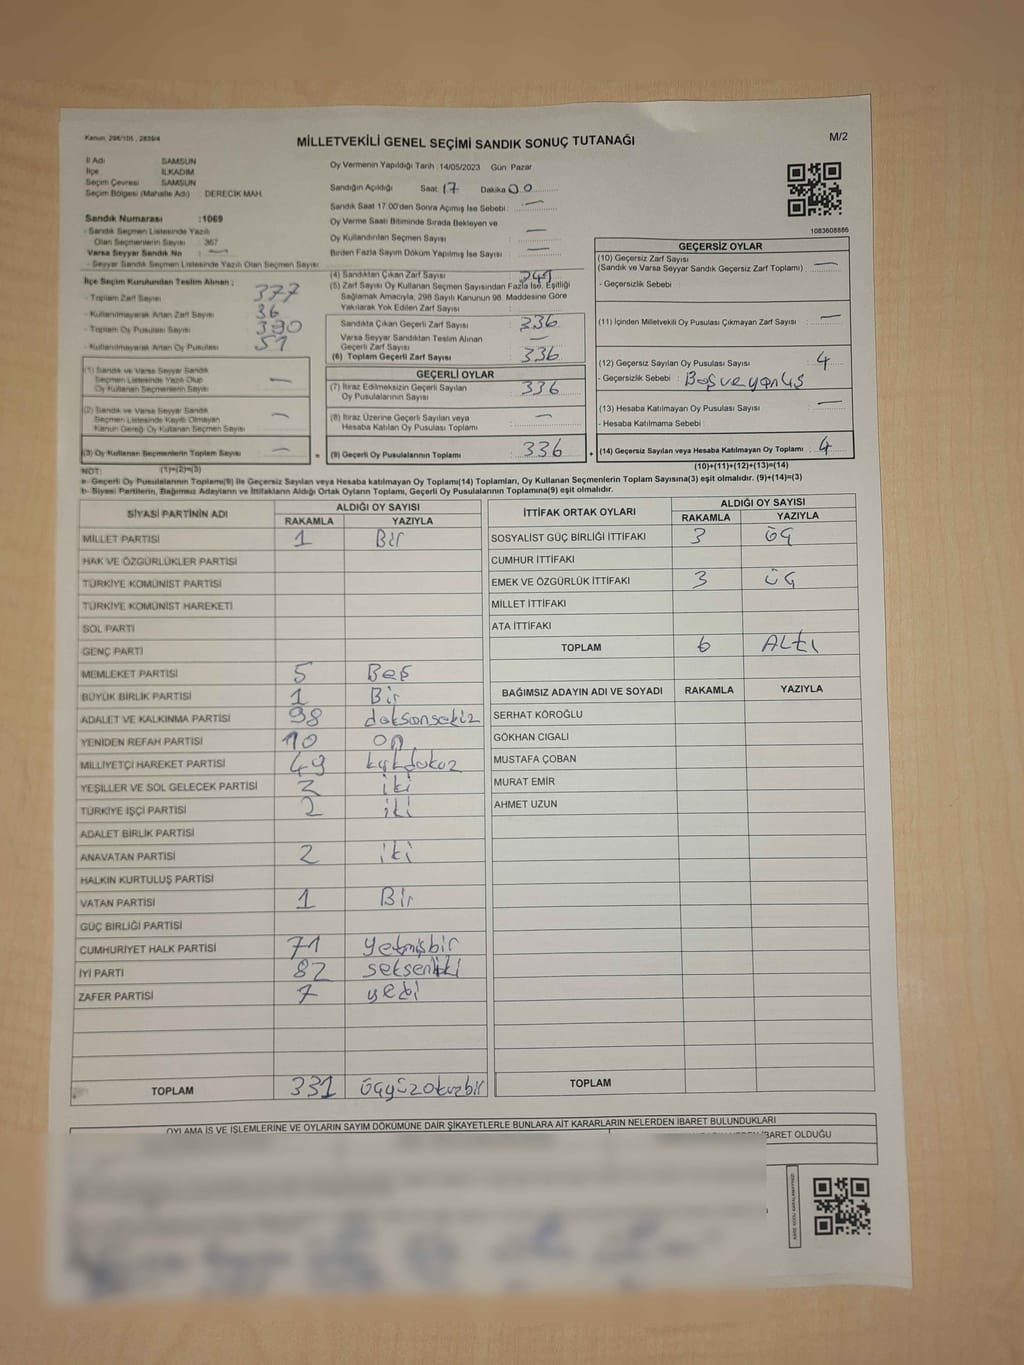 Kanun, 298/105 , 2839/4
MİLLETVEKİLİ GENEL SEÇİMİ SANDIK SONUÇ TUTANAĞI
M/2
İl Adı SAMSUN
İlçe İLKADIM
Seçim Çevresi SAMSUN
Seçim Bölgesi (Mahalle Adı) DERECİK MAH.
Sandık Numarası :1069
- Sandık Seçmen Listesinde Yazılı
Olan Seçmenlerin Sayısı 367
Varsa Seyyar Sandık No —
- Seyyar Sandık Seçmen Listesinde Yazılı Olan Seçmen Sayısı
İlçe Seçim Kurulundan Teslim Alınan ;
- Toplam Zarf Sayısı 377
- Kullanılmayarak Artan Zarf Sayısı 36
- Toplam Oy Pusulası Sayısı 390
- Kullanılmayarak Artan Oy Pusulası 51
(1) Sandık ve Varsa Seyyar Sandık
Seçmen Listesinde Yazılı Olup
Oy Kullanan Seçmenlerin Sayısı —
(2) Sandık ve Varsa Seyyar Sandık
Seçmen Listesinde Kayıtlı Olmayan
Kanun Gereği Oy Kullanan Seçmen Sayısı —
(3) Oy Kullanan Seçmenlerin Toplam Sayısı —
Oy Vermenin Yapıldığı Tarih :14/05/2023 Gün Pazar
Sandığın Açıldığı Saat 17 Dakika 00
Sandık Saat 17:00'den Sonra Açılmış İse Sebebi : —
Oy Verme Saati Bitiminde Sırada Bekleyen ve
Oy Kullandırılan Seçmen Sayısı —
Birden Fazla Sayım Döküm Yapılmış İse Sayısı : —
(4) Sandıktan Çıkan Zarf Sayısı
(5) Zarf Sayısı Oy Kullanan Seçmen Sayısından Fazla İse, Eşitliği
Sağlamak Amacıyla, 298 Sayılı Kanunun 98. Maddesine Göre
Yakılarak Yok Edilen Zarf Sayısı :
Sandıkta Çıkan Geçerli Zarf Sayısı 336
Varsa Seyyar Sandıktan Teslim Alınan
Geçerli Zarf Sayısı —
(6) Toplam Geçerli Zarf Sayısı 336
GEÇERLİ OYLAR
(7) İtiraz Edilmeksizin Geçerli Sayılan
Oy Pusulalarının Sayısı 336
(8) İtiraz Üzerine Geçerli Sayılan veya
Hesaba Katılan Oy Pusulası Toplamı —
= (9) Geçerli Oy Pusulalarının Toplamı 336
1083608886
GEÇERSİZ OYLAR
(10) Geçersiz Zarf Sayısı
(Sandık ve Varsa Seyyar Sandık Geçersiz Zarf Toplamı) —
- Geçersizlik Sebebi :
(11) İçinden Milletvekili Oy Pusulası Çıkmayan Zarf Sayısı —
(12) Geçersiz Sayılan Oy Pusulası Sayısı 4
- Geçersizlik Sebebi : Boş ve yanlış
(13) Hesaba Katılmayan Oy Pusulası Sayısı —
- Hesaba Katılmama Sebebi :
+ (14) Geçersiz Sayılan veya Hesaba Katılmayan Oy Toplamı 4
NOT: (1)+(2)=(3)
(10)+(11)+(12)+(13)=(14)
a- Geçerli Oy Pusulalarının Toplamı(9) ile Geçersiz Sayılan veya Hesaba katılmayan Oy Toplamı(14) Toplamları, Oy Kullanan Seçmenlerin Toplam Sayısına(3) eşit olmalıdır. (9)+(14)=(3)
b- Siyasi Partilerin, Bağımsız Adayların ve İttifakların Aldığı Ortak Oyların Toplamı, Geçerli Oy Pusulalarının Toplamına(9) eşit olmalıdır.
SİYASİ PARTİNİN ADI ALDIĞI OY SAYISI
RAKAMLA YAZIYLA
MİLLET PARTİSİ 1 Bir
HAK VE ÖZGÜRLÜKLER PARTİSİ
TÜRKİYE KOMÜNİST PARTİSİ
TÜRKİYE KOMÜNİST HAREKETİ
SOL PARTİ
GENÇ PARTİ
MEMLEKET PARTİSİ 5 Beş
BÜYÜK BİRLİK PARTİSİ 1 Bir
ADALET VE KALKINMA PARTİSİ 98 doksansekiz
YENİDEN REFAH PARTİSİ 10 on
MİLLİYETÇİ HAREKET PARTİSİ 49 kırkdokuz
YEŞİLLER VE SOL GELECEK PARTİSİ 2 iki
TÜRKİYE İŞÇİ PARTİSİ 2 iki
ADALET BİRLİK PARTİSİ
ANAVATAN PARTİSİ 2 iki
HALKIN KURTULUŞ PARTİSİ
VATAN PARTİSİ 1 Bir
GÜÇ BİRLİĞİ PARTİSİ
CUMHURİYET HALK PARTİSİ 71 yetmişbir
İYİ PARTİ 82 sekseniki
ZAFER PARTİSİ 7 yedi
TOPLAM 331 üçyüzotuzbir
İTTİFAK ORTAK OYLARI ALDIĞI OY SAYISI
RAKAMLA YAZIYLA
SOSYALİST GÜÇ BİRLİĞİ İTTİFAKI 3 üç
CUMHUR İTTİFAKI
EMEK VE ÖZGÜRLÜK İTTİFAKI 3 üç
MİLLET İTTİFAKI
ATA İTTİFAKI
TOPLAM 6 ALtı
BAĞIMSIZ ADAYIN ADI VE SOYADI RAKAMLA YAZIYLA
SERHAT KÖROĞLU
GÖKHAN CIGALI
MUSTAFA ÇOBAN
MURAT EMİR
AHMET UZUN
TOPLAM
OYLAMA İŞ VE İŞLEMLERİNE VE OYLARIN SAYIM DÖKÜMÜNE DAİR ŞİKAYETLERLE BUNLARA AİT KARARLARIN NELERDEN İBARET BULUNDUKLARI
İBARET OLDUĞU